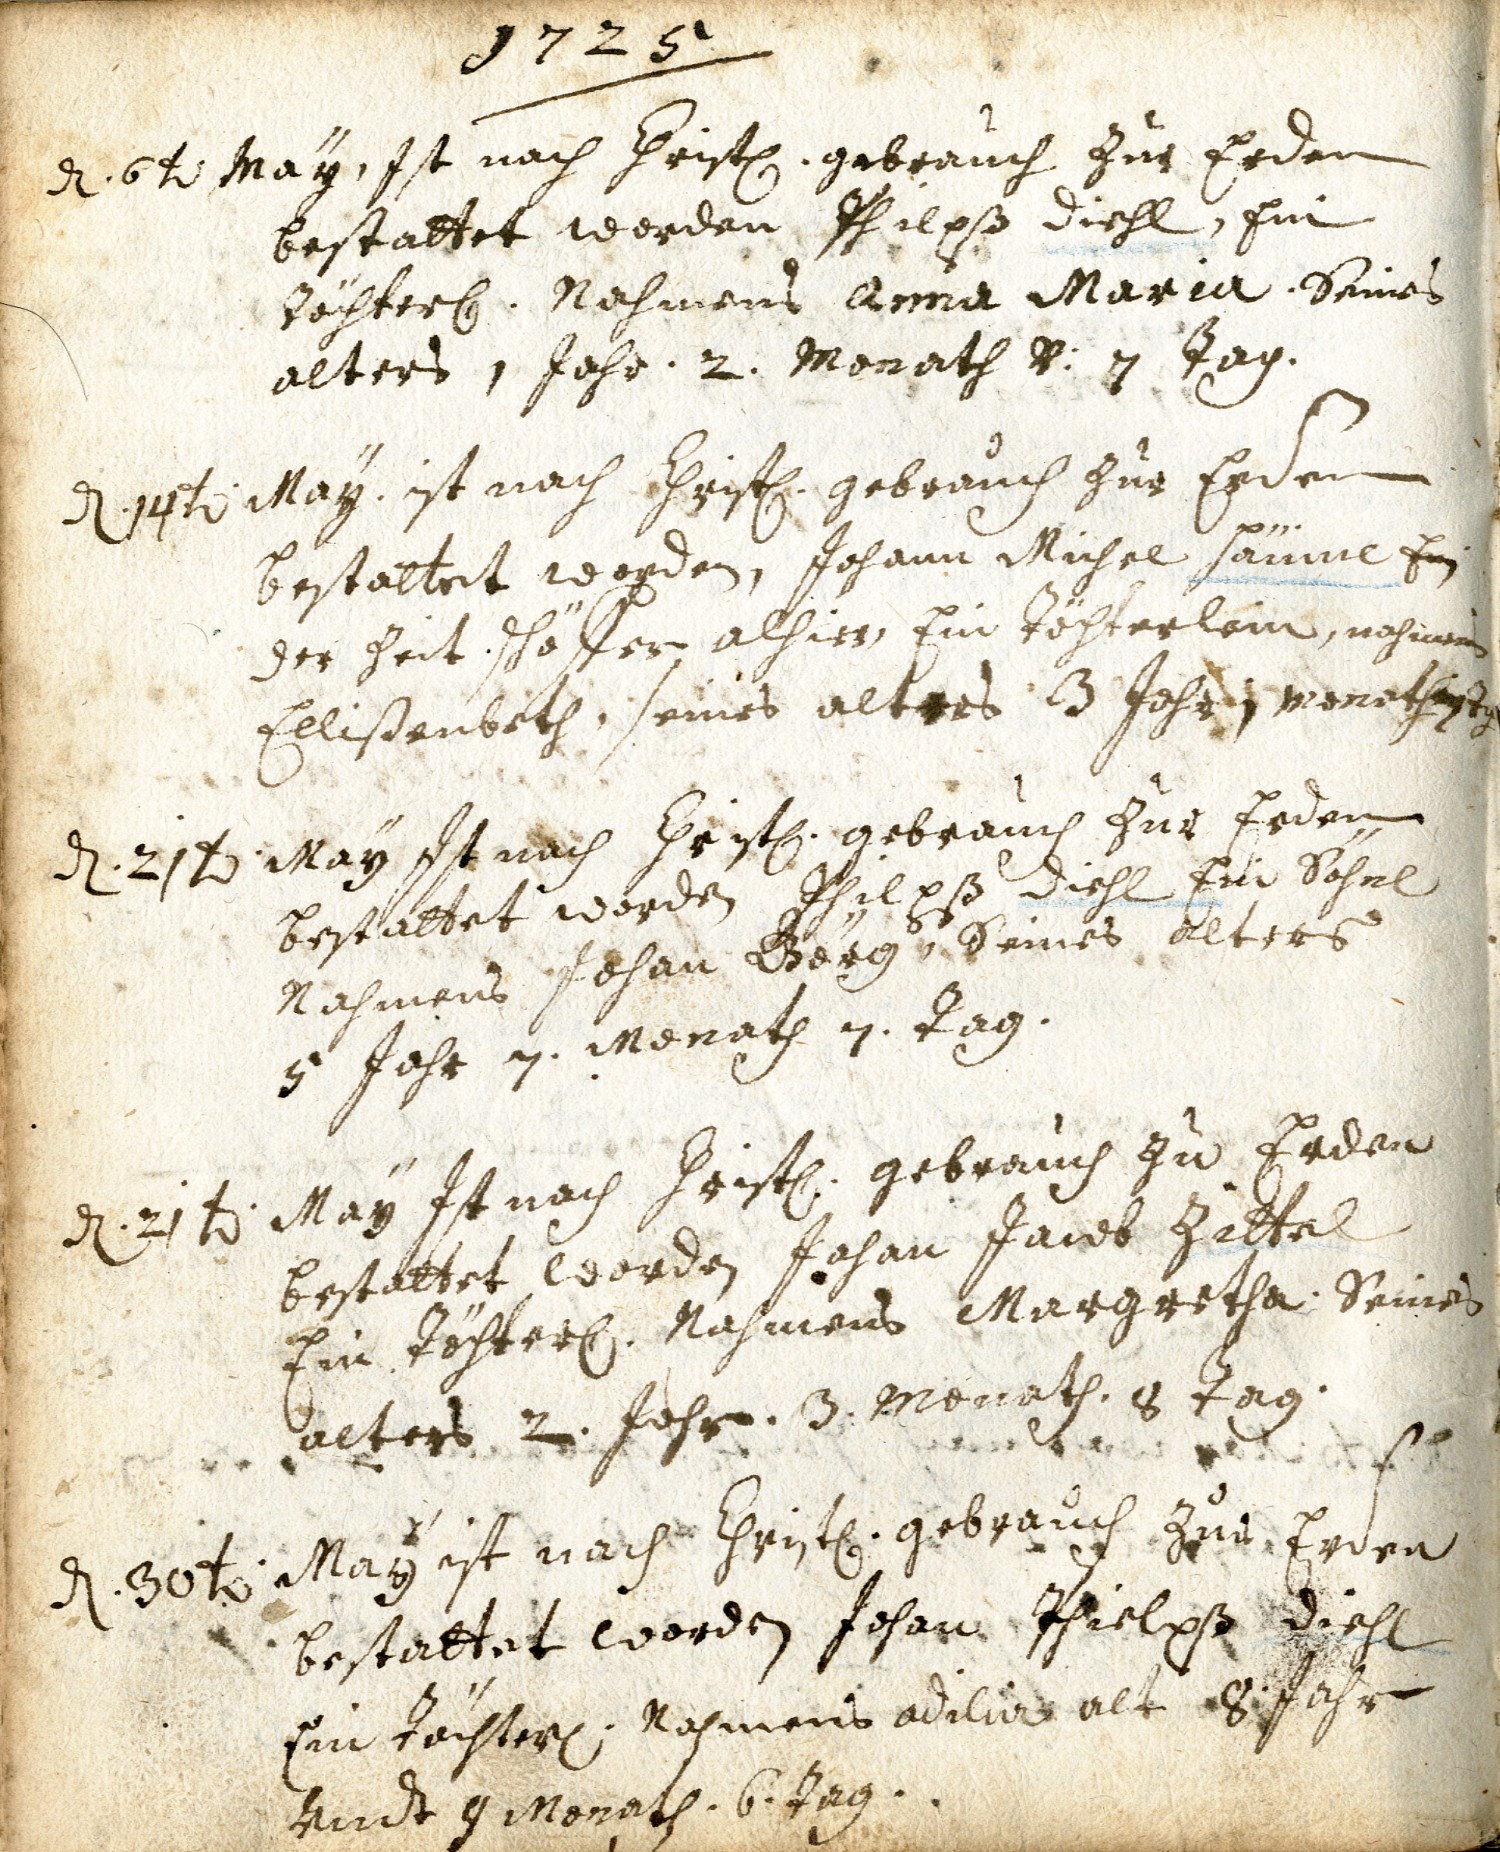 1725
d. 6t. May, Ist nach Christl. gebrauch Zur Erden
bestattet worden Philpß Diehl, Ein
Töchterl. Nahmens Anna Maria. Seines
alters 1 Jahr. 2. Monath V: 7 Tag.
d. 14t. May. ist nach Christl. gebrauch Zur Erden
bestattet worden, Johann Michel
der Zeit. schöffen alhier, Ein Töchterlein, nahmens
Ellißenbeth, seines alters 3 Jahr 1 monath
d. 21t. May Ist nach Christl. gebrauch Zur Erden
bestattet worden Philpß Diehl Ein Söhnl
Nahmens Johan Görg, Seines alters
5 Jahr 7. Monath 7. Tag.
d. 21t. May Ist nach Christl. gebrauch Zu Erden
bestattet worden Johan Jacob Zittel
Ein Töchterl. Nahmens Margretha. Seines
alters 2. Jahr. 3. Monath. 8 Tag.
d. 30t. May ist nach Christl. gebrauch Zur Erden
bestattet worden Johan Phielpß Diehl
Ein Töchterl. Nahmens adilia alt 8 Jahr
Undt 9 Monath. 6. Tag.